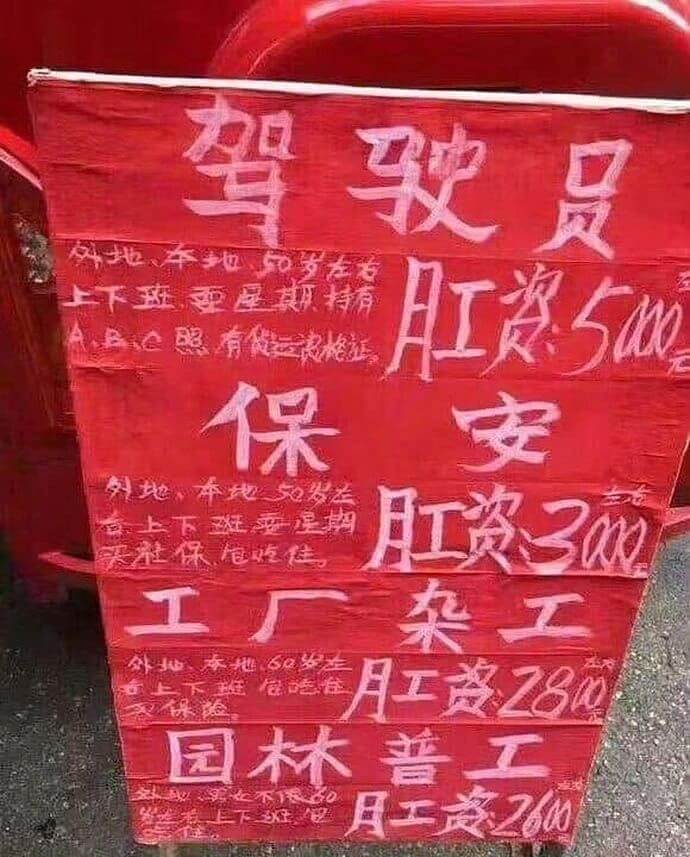 驾驶员
外地、本地、50岁左右
上下班、要星期持有
A、B、C照、有货运资格证。
月工资:5000左右元
保安
外地、本地、50岁左
右上下班、要星期
买社保、包吃住。
月工资:3000左右
工厂杂工
外地、本地、60岁左
右上下班 包吃住
保险。
月工资:2800左右
园林普工
外地、男女不限60
岁左右上下班包
吃住。
月工资:2600左右